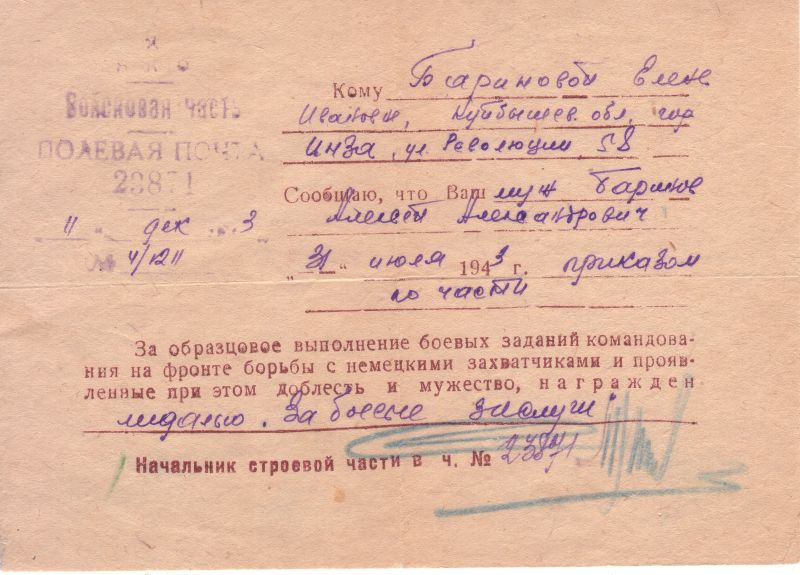 Н К О
Войсковая часть
ПОЛЕВАЯ ПОЧТА
23871
"11" дек ... 3
№ 4/1211
Кому Бариновой Елене
Ивановн, Куйбышев. обл, гор
Инза, ул. Революции 58
Сообщаю, что Ваш муж Баринов
Алексей Александрович
"31" июля 1943 г. приказом
по части
За образцовое выполнение боевых заданий командова-
ния на фронте борьбы с немецкими захватчиками и прояв-
ленные при этом доблесть и мужество, награжден
медалью "За боевые заслуги"
Начальник строевой части в ч. № 23871